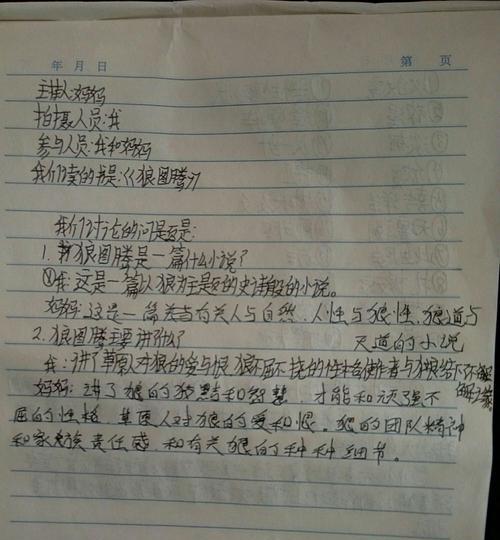 年 月 日 第 页
主持人:妈妈
拍摄人员:我
参与人员:我和妈妈
我们读的书是:《狼图腾》
我们讨论的问题是:
1. 狼图腾是一篇什么小说?
①我:这是一篇以狼为主题的史诗般的小说。
妈妈:这是一篇关于有关人与自然、人性与狼性、狼道与
天道的小说
2. 狼图腾主要讲什么?
我:讲了草原人对狼的爱与恨 狼不屈不挠的性格使作者与狼结下不解
之缘
妈妈:讲了狼的狡黠和智慧、才能和顽强不
屈的性格,草原人对狼的爱和恨。狼的团队精神
和家族责任感,和有关狼的种种细节。